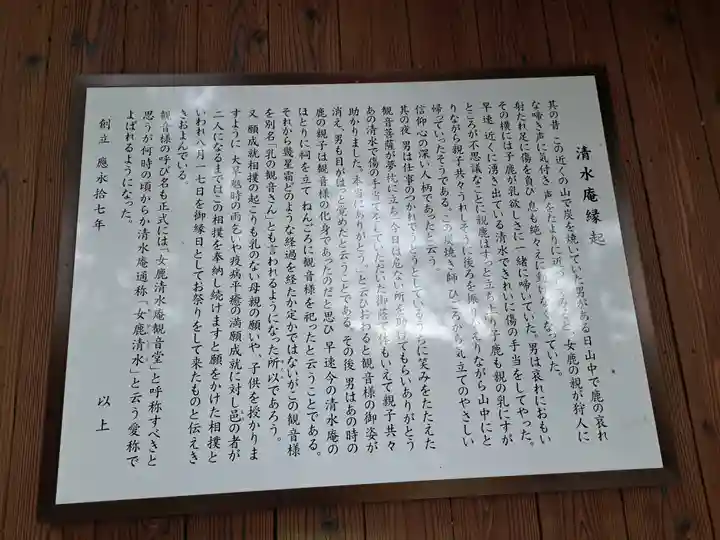 清水庵縁起
其の昔 この近くの山で炭を焼いていた男がある日山中で鹿の哀れ
な啼き声に気付き声をたよりに近づいてみると、女鹿の親が狩人に
射たれ足に傷を負ひ息も絶々えにたおれていた。
その横には子鹿が乳欲しさに一緒に啼いていた。男は哀れにおもい
早速 近くに湧き出ている清水できれいに傷の手当をしてやった。
ところが不思議なことに親鹿はすっと立ち上り子鹿も親の乳にすが
りながら親子共々うれしそうに後ろを振りかえりながら山中にと
帰っていったそうである。この炭焼き師 ひごろから気立てのやさしい
信仰心の深い人柄であったと云う。
其の夜 男は仕事のつかれでうとうとしているうちに笑みをたたえた
観音菩薩が夢枕に立ち 今日は危ない所を助けてもらいありがとう
あの清水で傷の手当をしていただいた御蔭で傷もいえて親子共々
助かりました。本当にありがとう。と云ひおわると観音様の御姿が
消え、男も目がはっと覚めたと云うことである。その後 男はあの時の
鹿の親子は観音様の化身であったのだと思ひ 早速今の清水庵の
ほとりに祠を立て ねんごろに観音様を祀ったと云うことである。
それから幾星霜どのような経過を経たか定かではないがこの観音様
を別名「乳の観音さん」とも言われるようになった所以であろう。
又 願成就相撲の起こりも乳のない母親の願いや、子供を授かりま
すように 大旱魃時の雨乞いや疫病平癒の満願成就に対し邑の者が
二人になるまではこの相撲を奉納し続けますと願をかけた相撲と
いわれ八月一七日を御縁日としてお祭りをして来たものと伝えき
きおよんでいる。
観音様の呼び名も正式には、「女鹿清水庵観音堂」と呼称すべきと
思うが何時の頃からか清水庵通称「女鹿清水」と云う愛称で
よばれるようになった。
創立 應永拾七年 以上